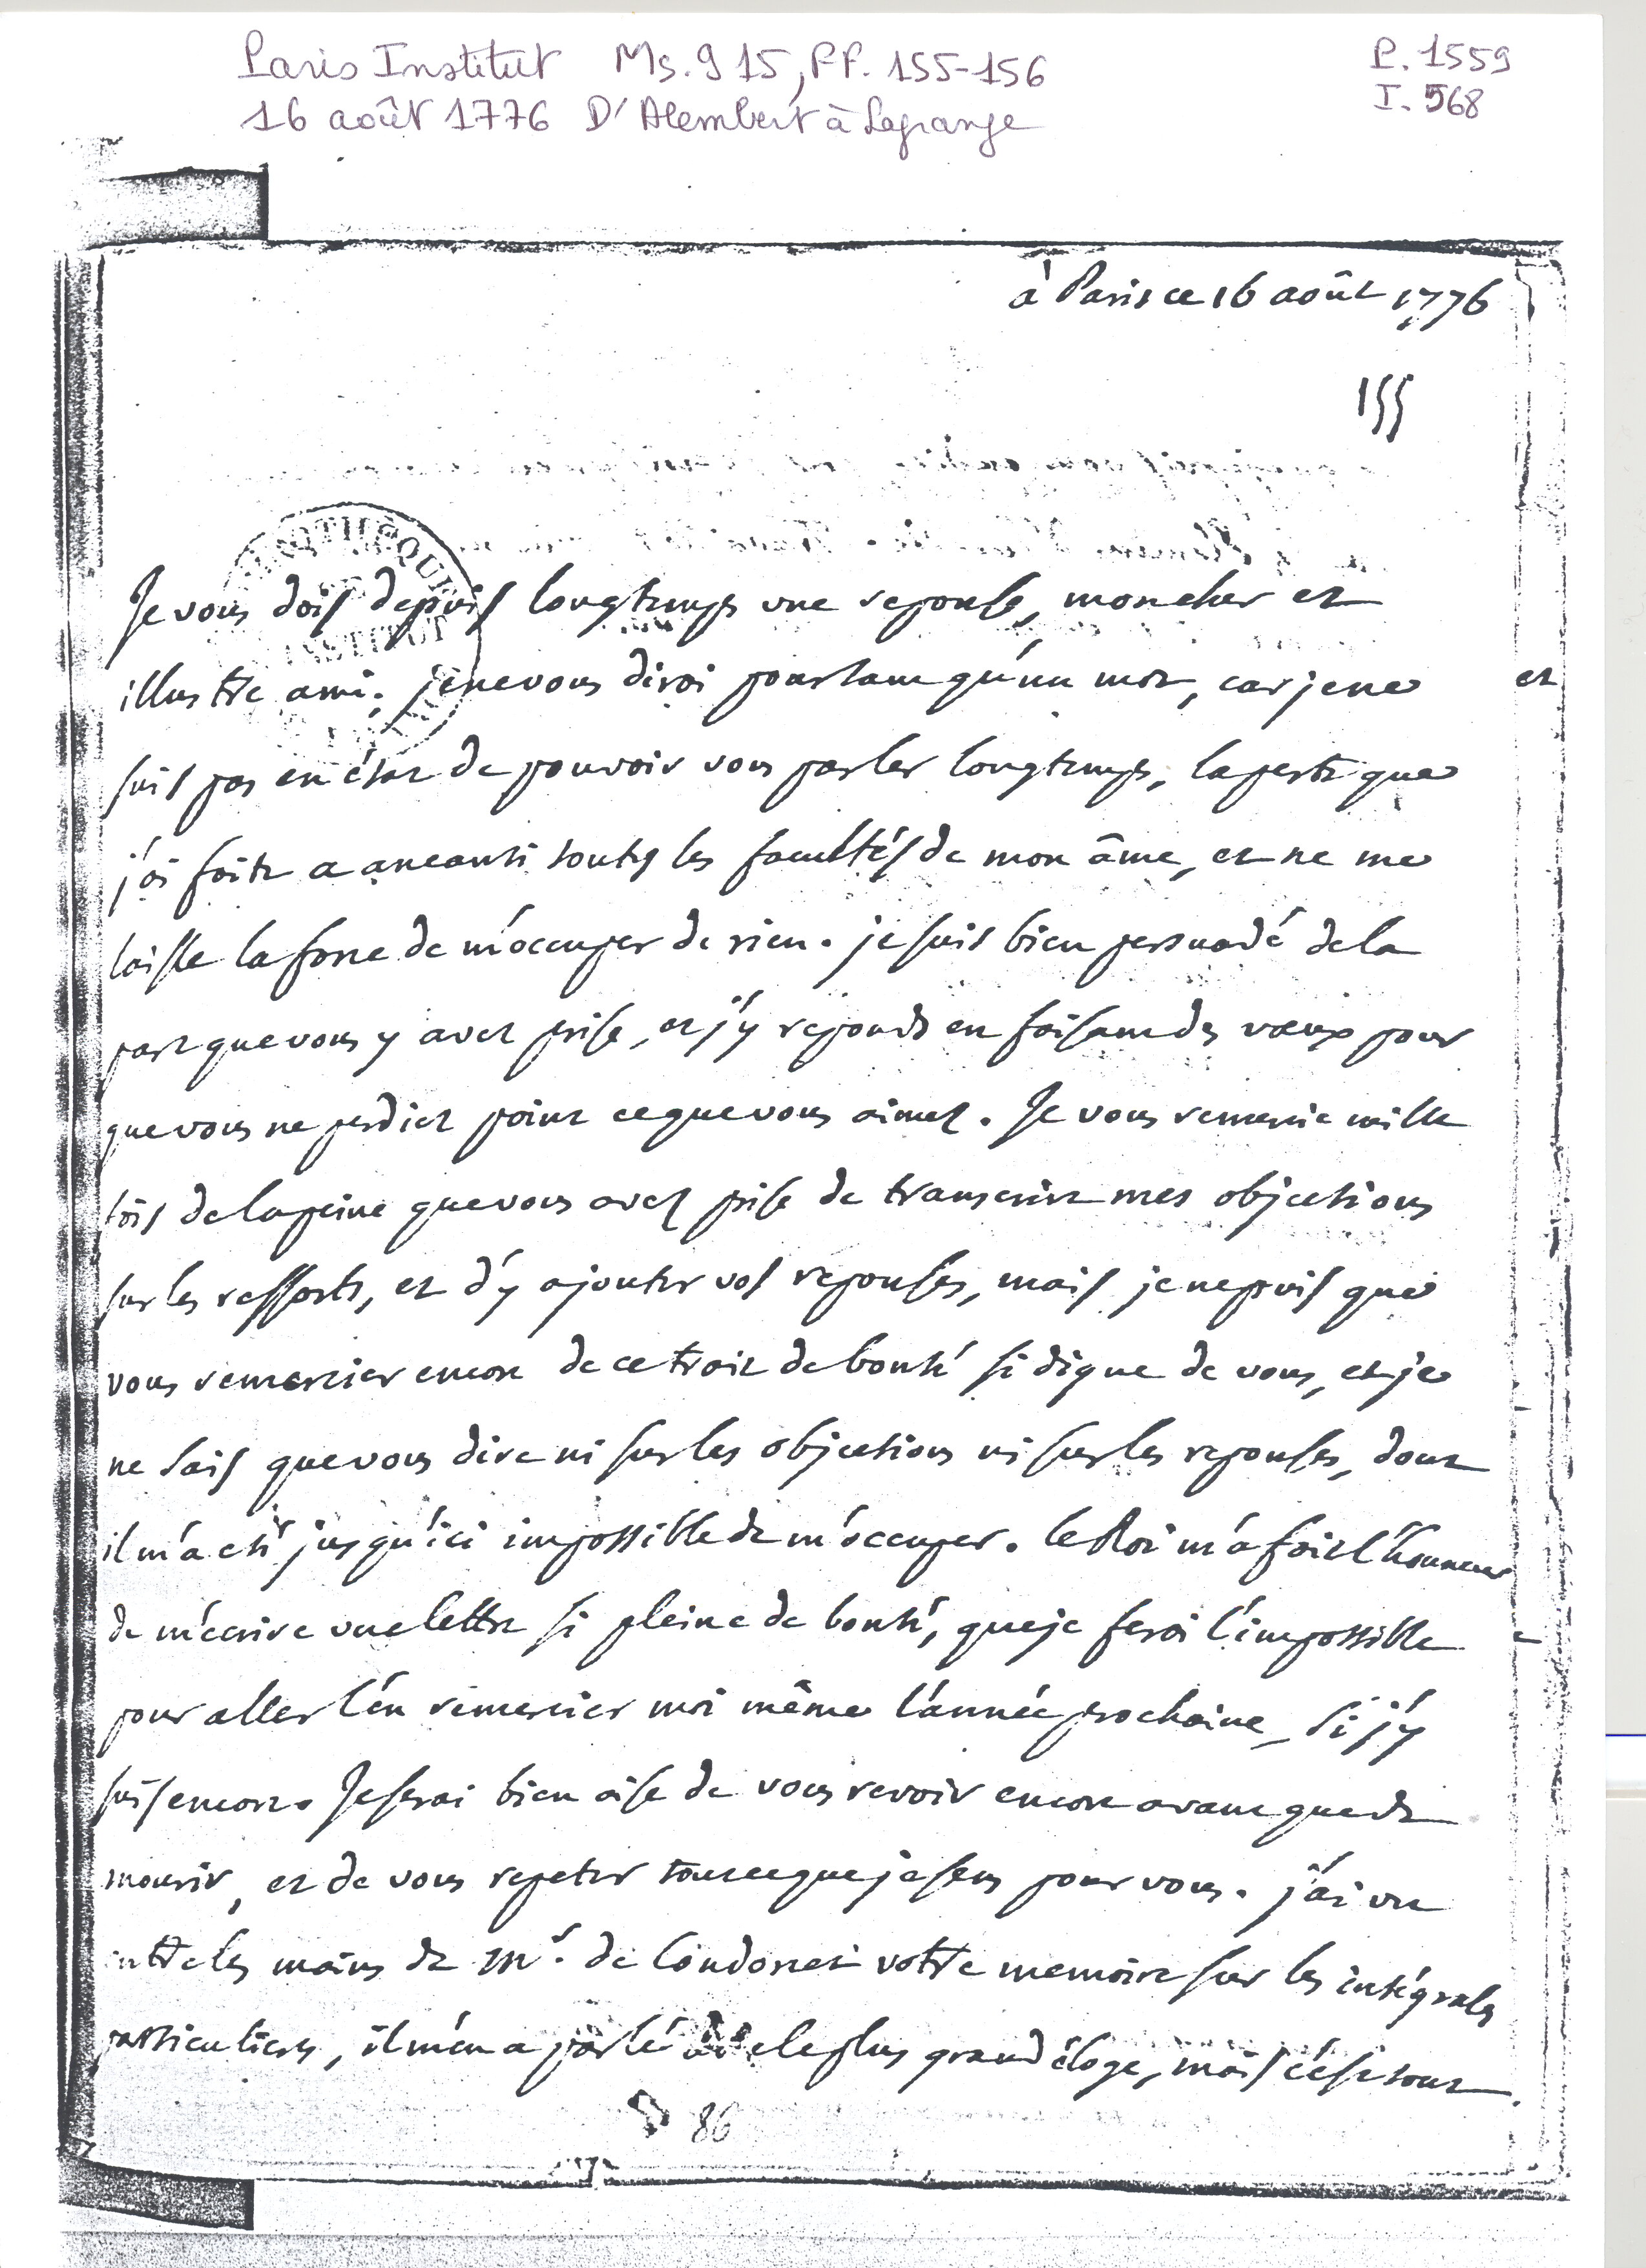 Paris Institut Ms. 915, ff. 155-156
P. 1559
16 août 1776 D'Alembert à Lagrange
I. 568
à Paris ce 16 août 1776
155
BIBLIOTHEQUE
INSTITUT
Je vous dois depuis longtemps une reponse, mon cher et
illustre ami; je ne vous dirai pourtant qu'un mot, car je ne
suis pas en état de pouvoir vous parler longtemps, la perte que
j'ai faite a aneanti toutes les facultés de mon âme, et ne me
laisse la force de m'occuper de rien. je suis bien persuadé de la
part que vous y avez prise, et j'y reponds en faisant des vœux pour
que vous ne perdiez point ce que vous aimez. Je vous remercie mille
fois de la peine que vous avez prise de transcrire mes objections
sur les ressorts, et d'y ajouter vos reponses, mais je ne puis que
vous remercier encore de ce trait de bonté si digne de vous, et je
ne sais que vous dire ni sur les objections ni sur les reponses, dont
il m'a eté jusqu'ici impossible de m'occuper. le Roi m'a fait l'honneur
de m'écrire une lettre si pleine de bonté, que je ferai l'impossible
pour aller l'en remercier moi même l'année prochaine, si j'y
suis encore. Je serai bien aise de vous revoir encore avant que de
mourir, et de vous repeter tout ce que je sens pour vous. j'ai vu
entre les mains de Mr. de Condorcet votre memoire sur les intégrales
particulieres, il m'en a parlé avec le plus grand éloge, mais c'est tout
86
et